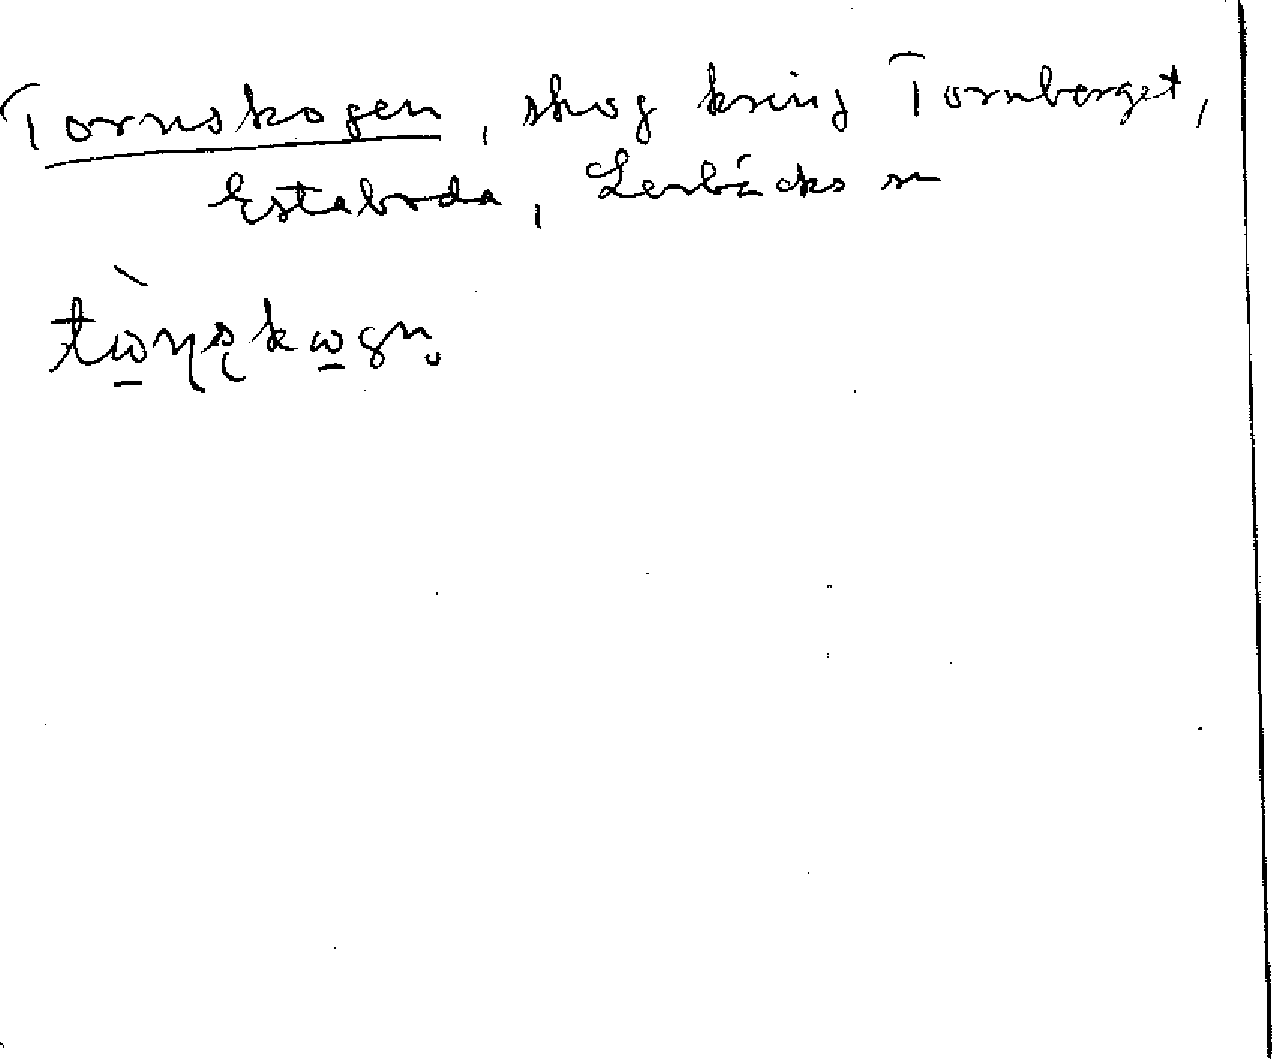 Tornskogen, skog kring Tornberget,
Estaboda, Lerbäcks sn
tò̱ɳʂko̱gn̥